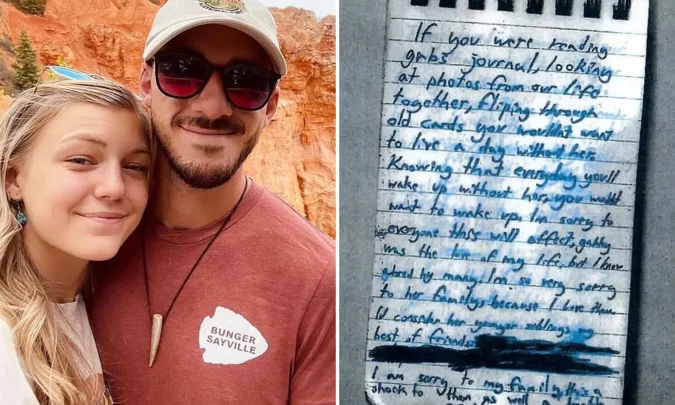 BUNGER
SAYVILLE
If you were reading
gabs journal, looking
at photos from our life
together, fliping through
old cards you wouldn't want
to live a day without her.
Knowing that everyday you'll
wake up without her, you wouldn't
want to wake up. I'm sorry to
everyone this will affect, gabby
was the love of my life, but I know
adored by many. I'm so very sorry
to her familys because I love them
I'd consider her younger siblings my
best of friends
I am sorry to my family, this is a
shock to them as well a